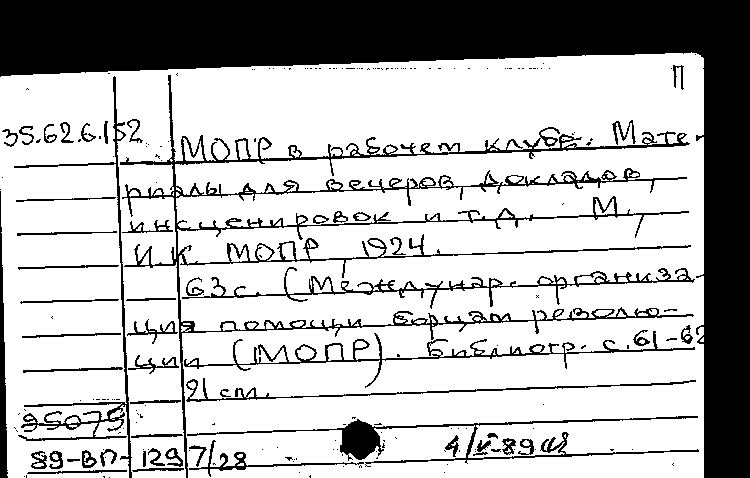 П
35.62.6.152
МОПР в рабочем клубе. Мате-
риалы для вечеров, докладов,
инсценировок и т.д. М.,
И.К. МОПР, 1924.
63 с. (Междунар. организа-
ция помощи борцам револю-
ции (МОПР). Библиогр. с. 61-62
21 см.
95075
89-ВП-1297/28
4/V-89